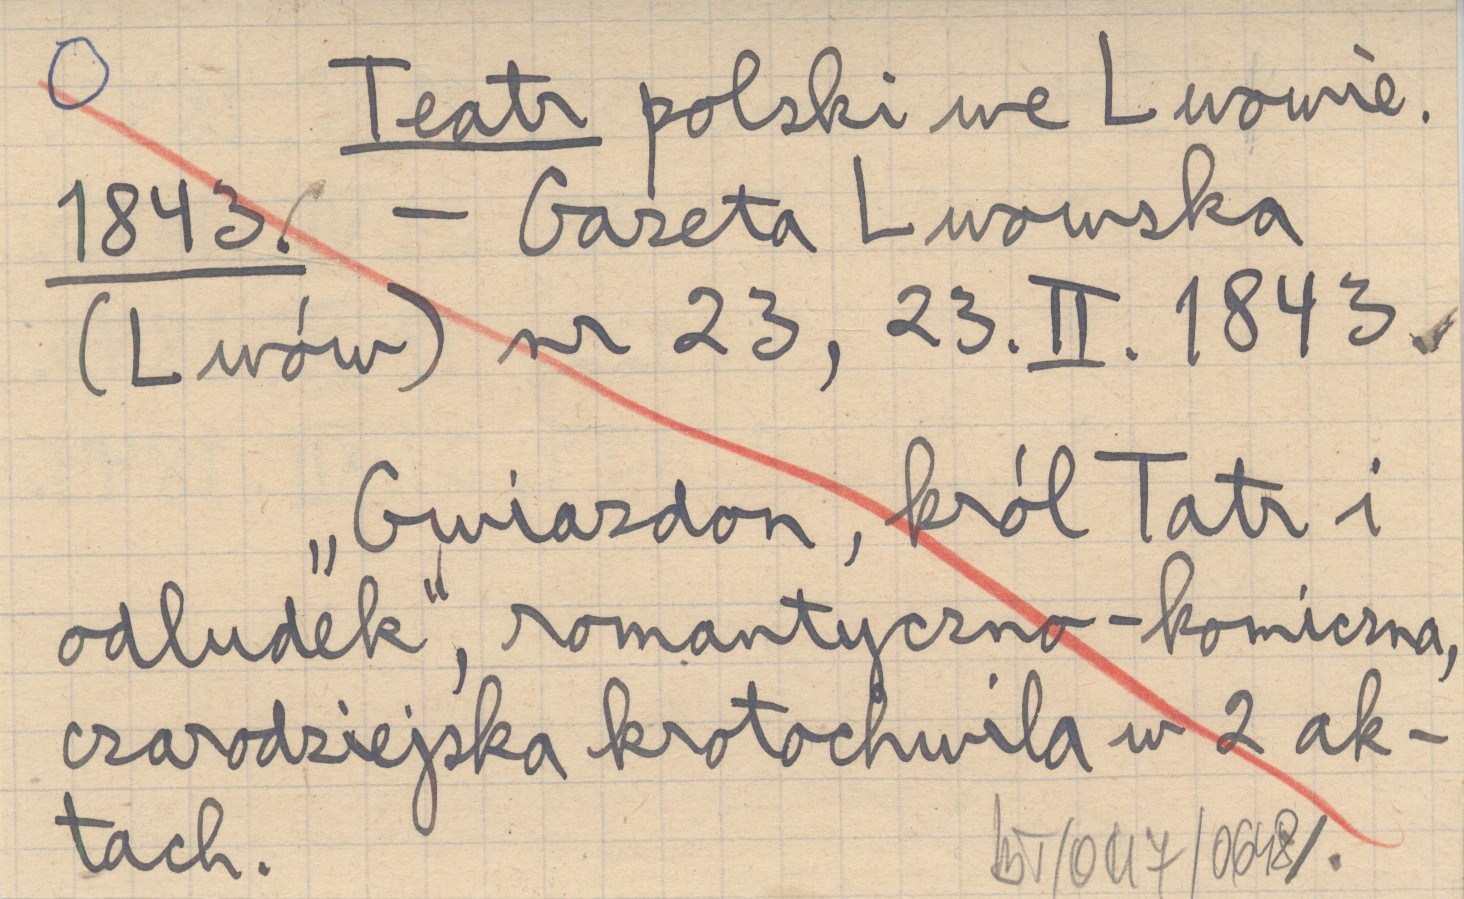 Teatr polski we Lwowie.
1843. — Gazeta Lwowska
(Lwów) nr 23, 23.II.1843.
„Gwiazdon, król Tatr i
odludek“, romantyczno-komiczna,
czarodziejska krotochwila w 2 ak-
tach.